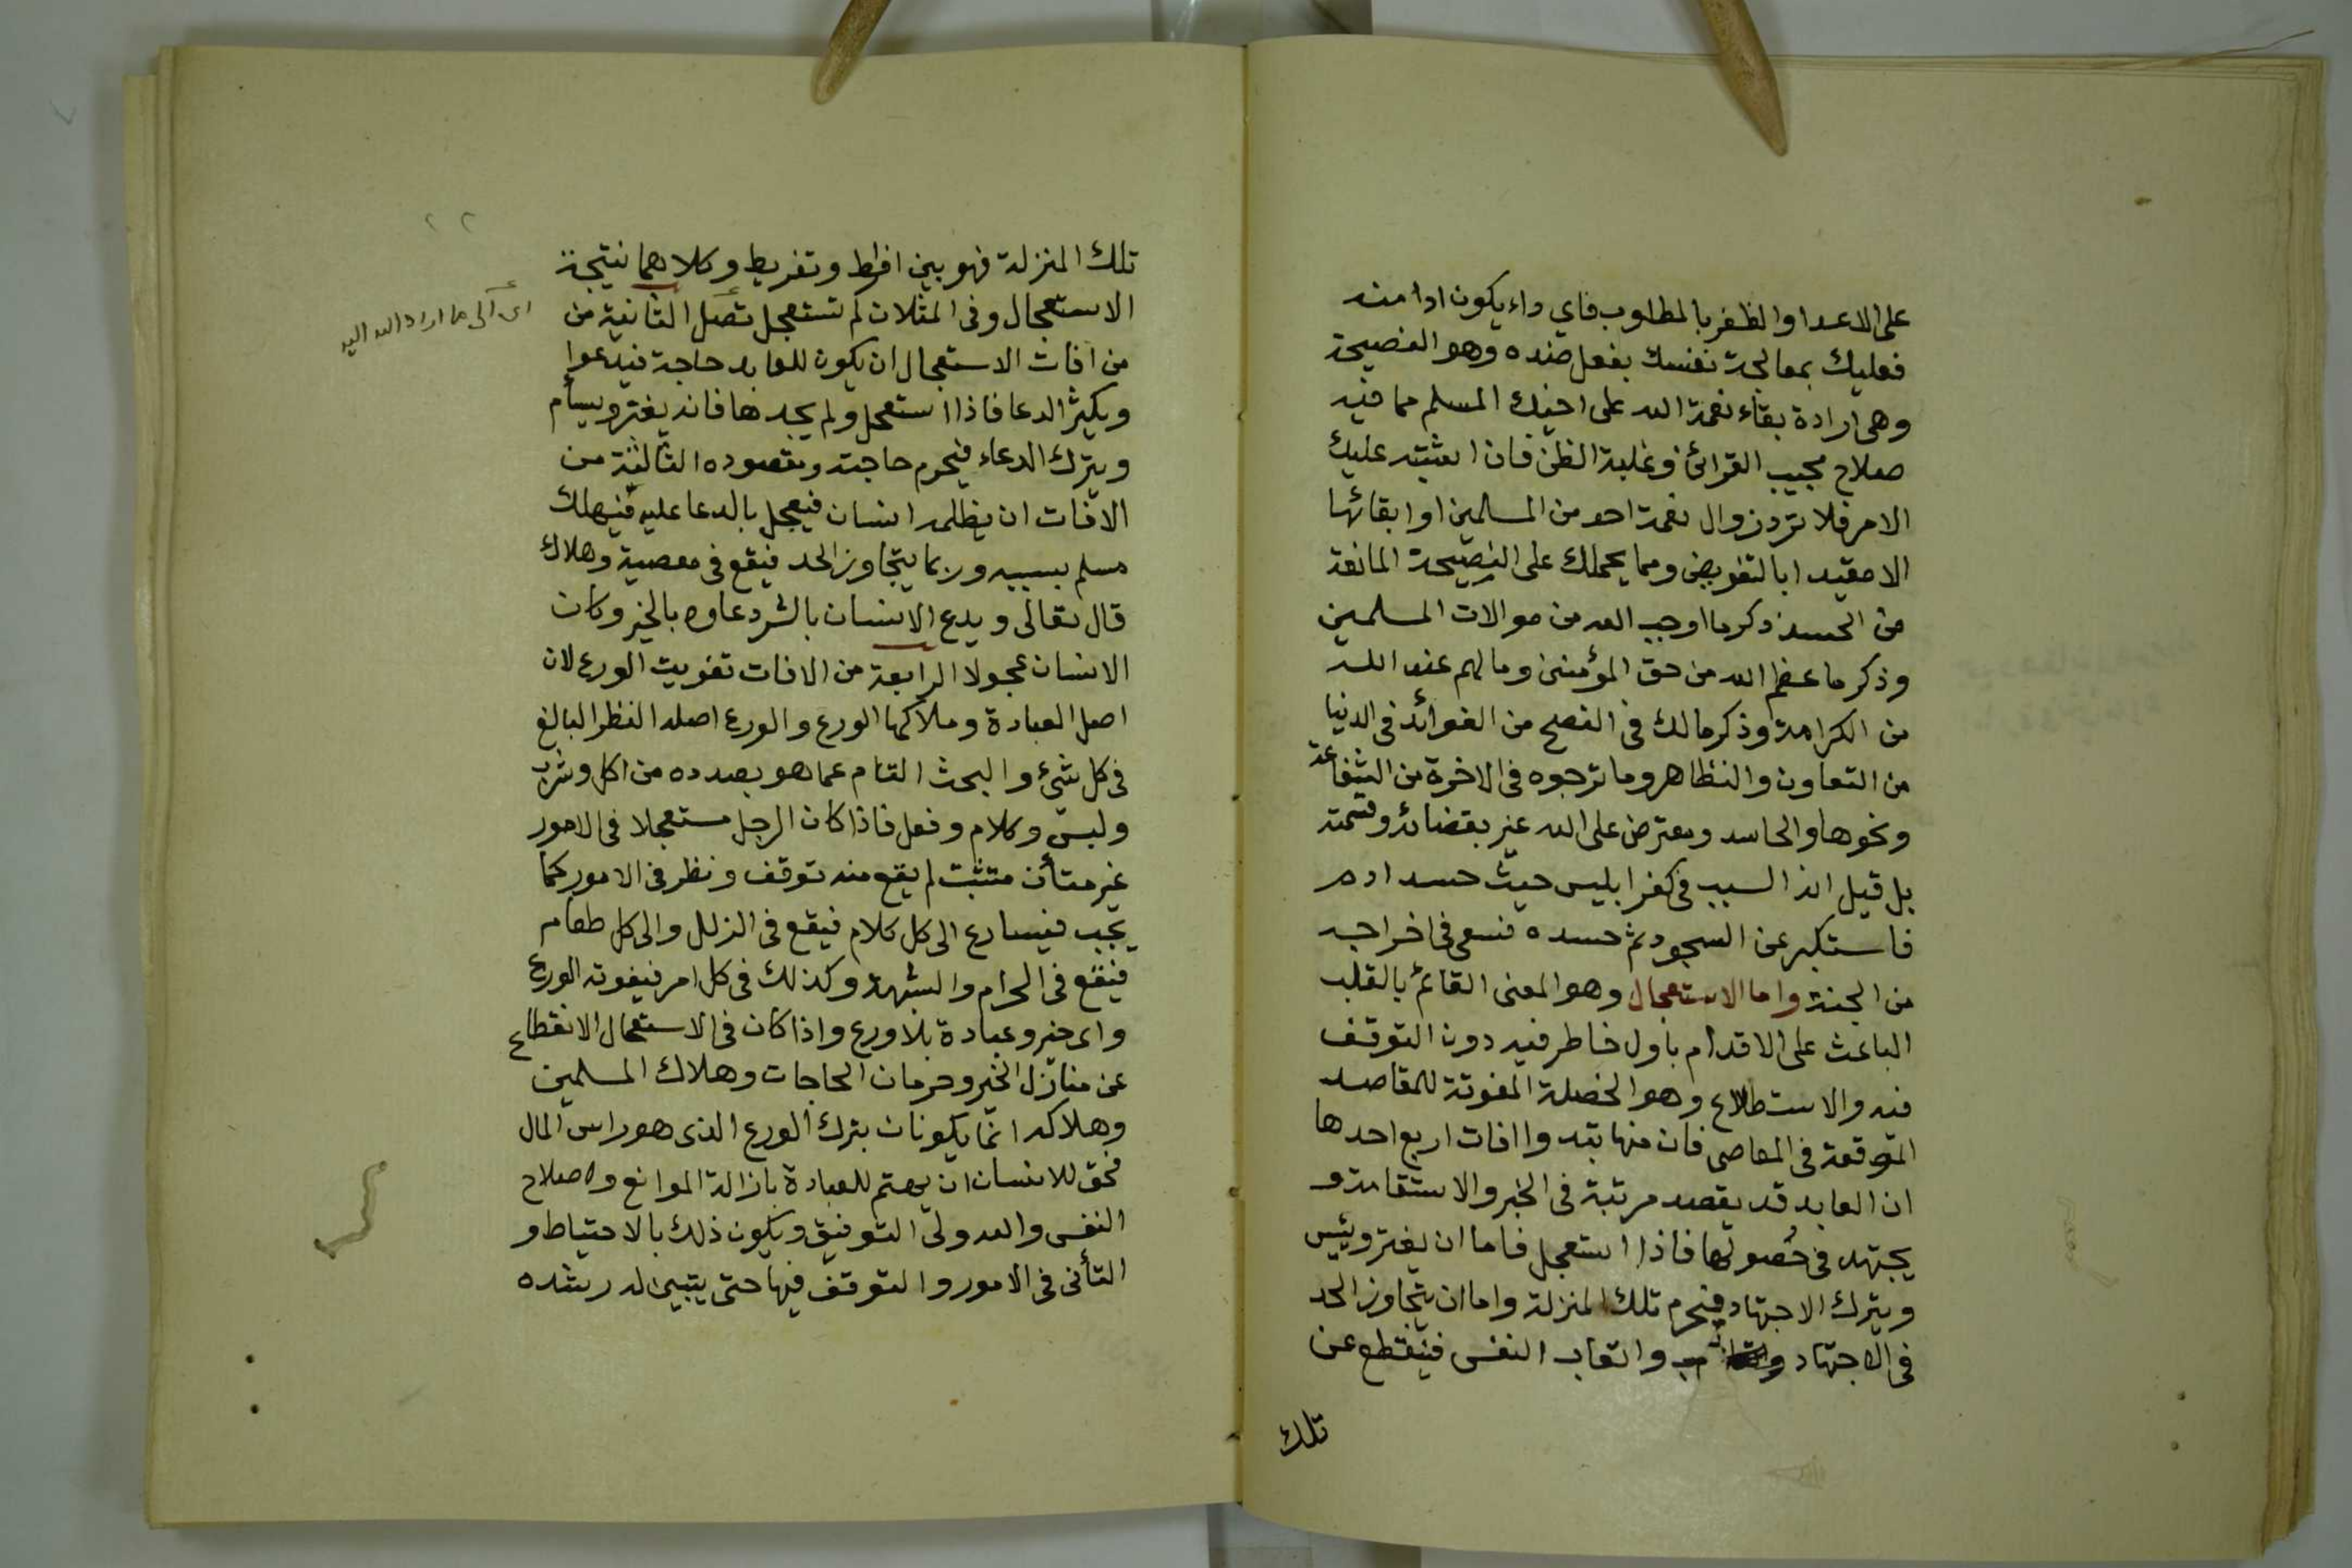 على الاعدا والظفر بالمطلوب فاي داء يكون ادا منه
فعليك بمعالجة نفسك بفعل ضده وهو النصيحة
وهى ارادة بقاء نعمة الله على اخيك المسلم مما فيه
صلاح مجيب القرائن وغلبة الظن فان اشتبه عليك
الامر فلا ترد زوال نعمة احد من المسلمين او ابقائها
الا مقيدا بالتفويض ومما يحملك على النصيحة المانعة
من الحسد ذكر ما اوجب الله من موالات المسلمين
وذكر ما عظم الله من حق المؤمنين وما لهم عند الله
من الكرامة وذكر مالك فى النصح من الفوائد فى الدنيا
من التعاون والتظاهر وما ترجوه فى الاخرة من الشفاعة
ونحوها والحاسد ومعترض على الله غير بقضائه وقسمته
بل قيل انه السبب فى كفر ابليس حيث حسد ادم
فاستكبر عن السجود ثم حسده فسعى فى اخراجه
من الجنة واما الاستعجال وهو المعنى القائم بالقلب
الباعث على الاقدام باول خاطر فيه دون التوقف
فيه والاستطلاع وهو الخصلة المفوتة للمقاصد
الموقعة فى المعاصى فان منها تبدوا افات اربع احدها
ان العابد قد يقصد مرتبة فى الخير والاستقامة و
يجتهد فى حصولها فاذا استعجل فاما ان يفتر ويئيس
ويترك الاجتهاد فيحرم تلك المنزلة واما ان يتجاوز الحد
فى الاجتهاد واتعاب النفس فينقطع عن
تلك
تلك المنزلة فهو بين افراط وتفريط وكلاهما نتيجة
الاستعجال وفى المثلات لم تستعجل تصل الثانية من
من افات الاستعجال ان يكون للعابد حاجة فيدعوا
ويكثر الدعا فاذا استعجل ولم يجدها فانه يفتر ويسأم
ويترك الدعاء فيحرم حاجته ومقصوده الثالثة من
الافات ان يظلمه انسان فيعجل بالدعا عليه فيهلك
مسلم بسببه وربما يتجاوز الحد فيقع فى معصية وهلاك
قال تعالى ويدع الانسان بالشر دعاوه بالخير وكان
الانسان عجولا الرابعة من الافات تفويت الورع لان
اصل العبادة وملاكها الورع والورع اصله النظر البالغ
فى كل شئ والبحث التام عما هو بصدده من اكل وشرب
ولبس وكلام وفعل فاذا كان الرجل مستعجلا فى الامور
غير متأن متثبت لم يقع منه توقف ونظر فى الامور كما
يجب فيسارع الى كل كلام فيقع فى الزلل والى كل طعام
فيقع فى الحرام والشبهة وكذلك فى كل امر فيفوته الورع
واى خير وعبادة بلا ورع واذا كان فى الاستعجال الانقطاع
عن منازل الخير وحرمان الحاجات وهلاك المسلمين
وهلاكه انما يكونان بترك الورع الذى هو راس المال
فحق للانسان ان يهتم للعبادة بازالة الموانع واصلاح
النفس والله ولى التوفيق ويكون ذلك بالاحتياط و
التأنى فى الامور والتوقف فيها حتى يتبين له رشده
اى الى ما اراد الله اليه
٢٢